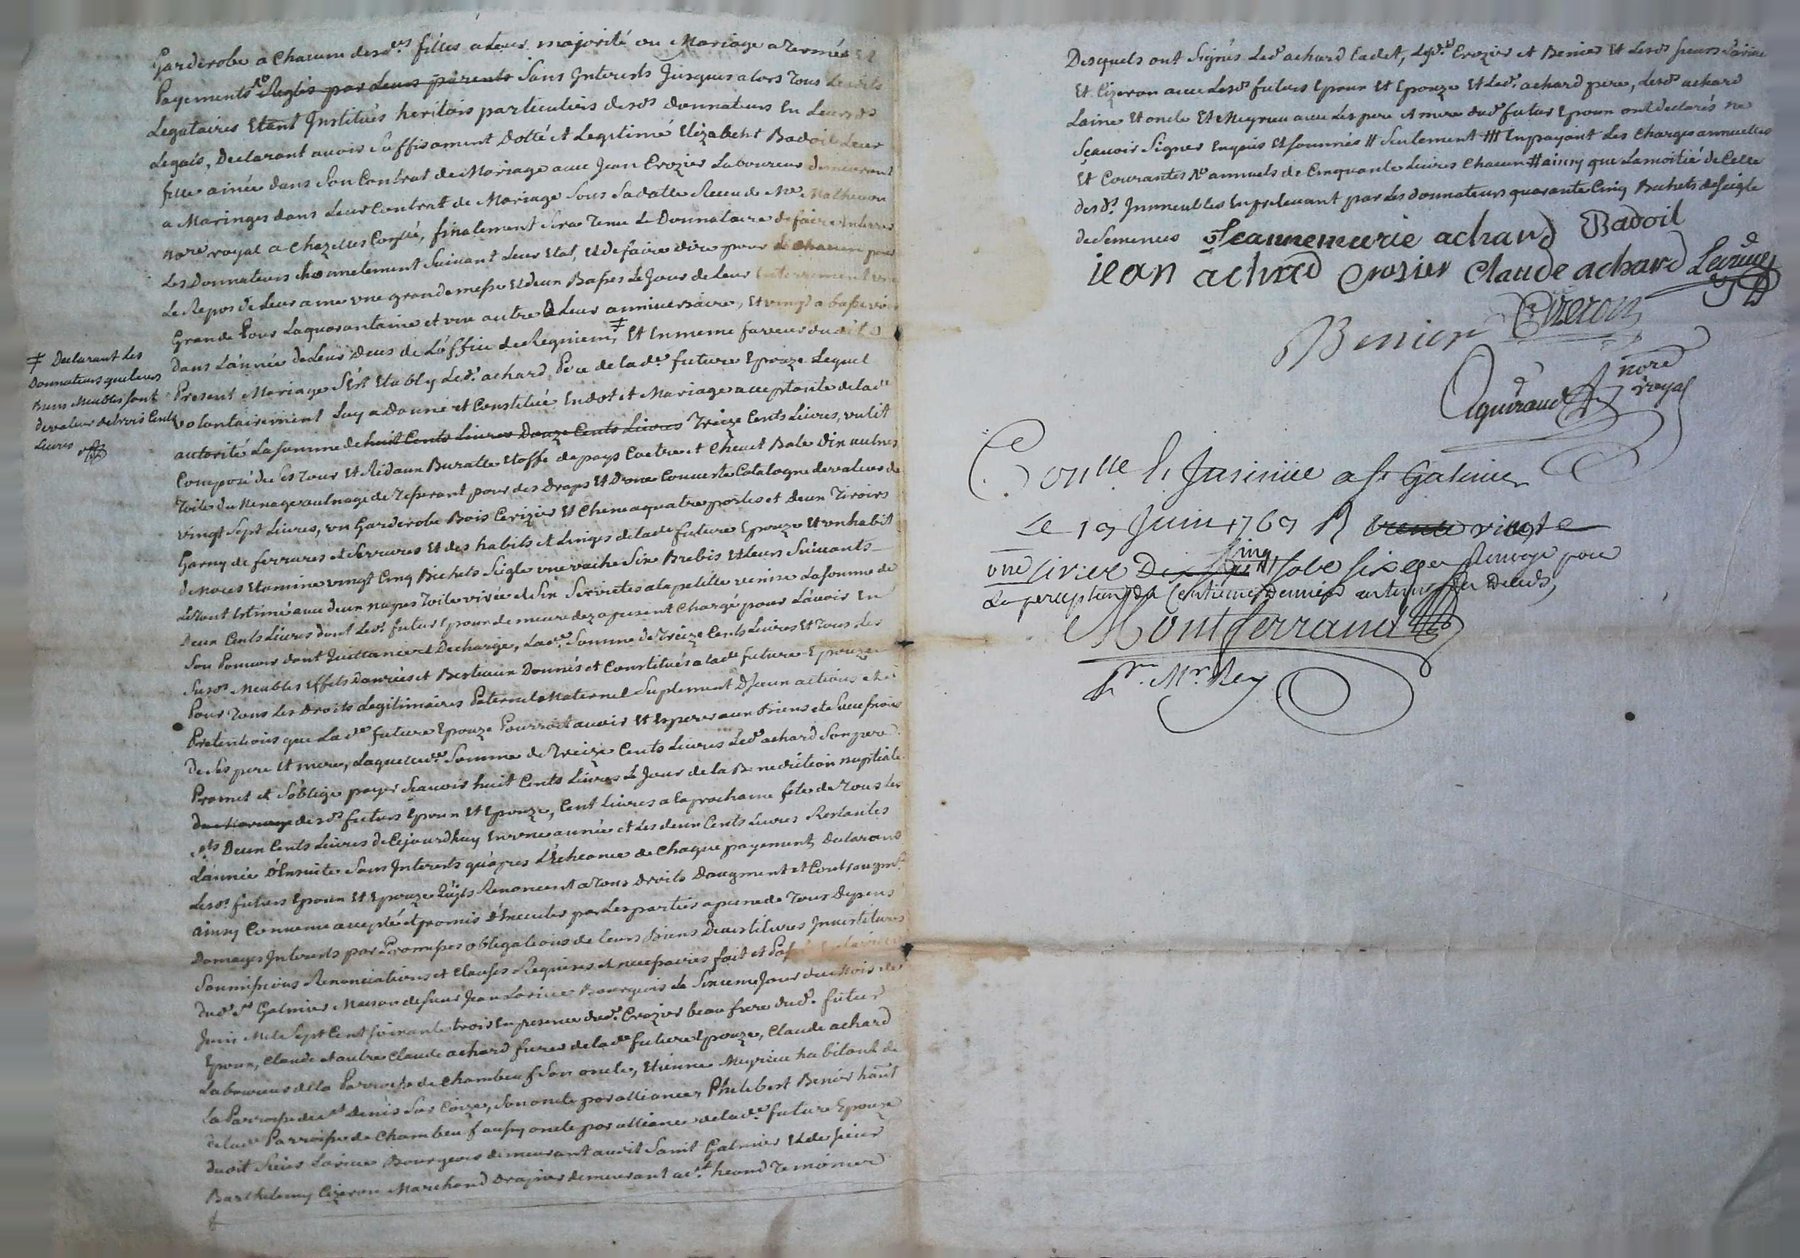 Garderobe a Chacune desd. filles a Leur majorité ou Mariage a termes Et
Payements Reglés par Leurs parents Sans Interests Jusques alors Tous
Legataires Etant Institués heritiers particuliers desd. donnateurs En Leurs
Legats, Declarant avoir Suffisament Dotté et Legitimé Elizabeht Badoil Leur
fille ainée dans Son Contrat de Mariage avec Jean Crozier Laboureur demeurant
a Maringes dans Leur Contrat de Mariage Sous Sa datte Receu de Me. Mathevon
nore. royal a Chazelles finalement Sera Tenu Le Donnataire de faire Enterrer
Les Donnateurs Suivant Leur Etat, Et de faire dire pour de chacun pour
Le Repos de Leur ame une grande messe Et deux Basses Le Jour de Leur Enterrement une
Grande Pour La quarantaine et une autre a Leur anniversaire, Et vingt a basse voix
dans L'année de Leur Deces de L'office de Requiem, ‡ Et En meme faveur dudit
Present Mariage S'est Etably Led. achard Pere de lad. future Epouze Lequel
volontairement Luy a Donné et Constitué En dot et Mariage acceptante de lad.
autorité La Somme de huit Cents Livres Douze Cents Livres Treize Cents Livres, un lit
Composé de Ses Tour Et Rideaux Buratte Etoffe de pays Coetre et Chevet Bale d'in autres
Toile du Menage aulnage de Tisserant pour des draps Et D'une Couverte Catalogne de valeur de
vingt Sept Livres, un Garderobe Bois Cerizier Et Chene a quatre portes et deux Tiroirs
Garny de ferrures et Serrures Et des habits et Linges de lad. future Epouze Et un habit
de noces Etamine vingt Cinq Bichets Seigle une vache Six Brebis Et Leurs Suivants
Le Tout Estimé avec deux nappes Toile et Six Serviettes a la petite venise La Somme de
Deux Cents Livres dont Led. futur Epoux demeure dez a present Chargé pour L'avoir En
Son Pouvoir dont Quittance et Decharge, Lad. Somme de Treize Cents Livres Et Tous Les
Susd. Meubles Effets Danrées et Bestiaux Donnés et Constitués a lad. future Epouze
Pour Tous Les Droits Legitimaires Paternel et Maternel Suplement D'yceux actions et
Pretentions que La d. future Epouze Pourroit avoir Et Esperer aux Biens et Successions
de Ses pere Et mere, Laquelle Somme de Treize Cents Livres Led. achard Son pere
Promet et S'oblige payer Scavoir huit Cents Livres Le Jour de la Benediction nuptiale
du Mariage desd. futurs Epoux Et Epouze, Cent Livres a la prochaine fete de Tous Les
Sts Deux Cents Livres de Cejourdhuy En une année et Les deux Cents Livres Restantes
L'année D'Ensuite Sans Interests qu'apres L'Echeance de Chaque payement, Declarant
Lesd. futurs Epoux Et Epouze qu'ils Renoncent a Tous Droits D'augment et Contraugmt.
ainsy Convenu accepté et promis d'Executer par Les parties a peine de Tous Depens
Domages Interests par Promesses obligations de Leurs Biens Devestitures Investitures
Soumissions Renonciations et Clauses Requises et necessaires fait et Passé
dud. St. Galmier Maison de Sieur Jean Larive Bourgeois Le Sixieme Jour du Mois de
Juin Mil Sept Cent Soixante trois En presence dud. Crozier beau frere dud. futur
Epoux, Claude et autre Claude achard freres de lad. future Epouze, Claude achard
Laboureur de la Parroisse de Chambeuf Son oncle, Etienne Meyrieu habitant de
la Parroisse de St. Denis Sur Coize, Son oncle par alliance, Philibert Benier habt.
de lad. Parroisse de Chambeuf aussy oncle par alliance de lad. future Epouze
dudit Sieur Larive Bourgeois demeurant audit Saint Galmier Et de Sieur
Barthelemy Cizeron Marchand Drapier demeurant aud. St. heand Temoins
‡ Declarant Les
Donnateurs que leurs
Biens Meubles Sont
de valeur de trois Cents
Livres
Desquels ont Signés Led. achard Cadet, Lesd. Crozier et Benier Et Lesd. Sieurs Larive
Et Cizeron avec Lesd. futurs Epoux et Epouze Et Led. achard pere, Lesd. achard
L'ainé Et oncle Et Meyrieu avec Les pere et mere dud. futur Epoux ont declarés ne
Scavoir Signer Enquis Et Sommés // Seulement ## En payant Les Charges annuelles
Et Courantes annuels de Cinquante Livres Chacun # ainsy que La moitié de Celle
desd. Immeubles En prelevant par Les donnateurs quarante Cinq Bichets de Seigle
de Semences Jeannemeerie achard Badoil
iean achard Crozier Claude achard Larive
Benier Cizeron
nore.
royal
Conlle. & Insinüé a St Galmier
Le 19 Juin 1763 R trente vingt
une livres Dix Cinq Sols Six den Renvoyé pour
La perception du Centieme Denier au tems des Deceds,
Montferrand
Pr. Mr. Rey